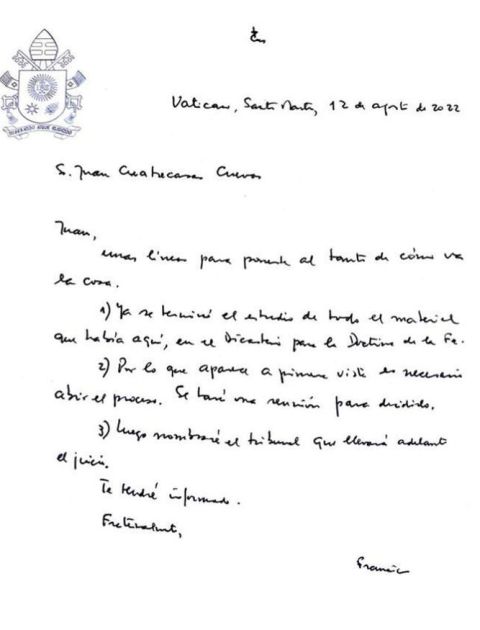 Vaticano, Santa Marta, 12 de agosto de 2022
S. Juan Cuatrecasas Cuevas
Juan,
unas líneas para ponerte al tanto de cómo va
la cosa.
1) Ya se terminó el estudio de todo el material
que había aquí, en el Dicasterio para la Doctrina de la Fe.
2) Por lo que aparece a primera vista es necesario
abrir el proceso. Se hará una reunión para decidirlo.
3) Luego nombraré el tribunal que llevará adelante
el juicio.
Te tendré informado.
Fraternalmente,
Francisco